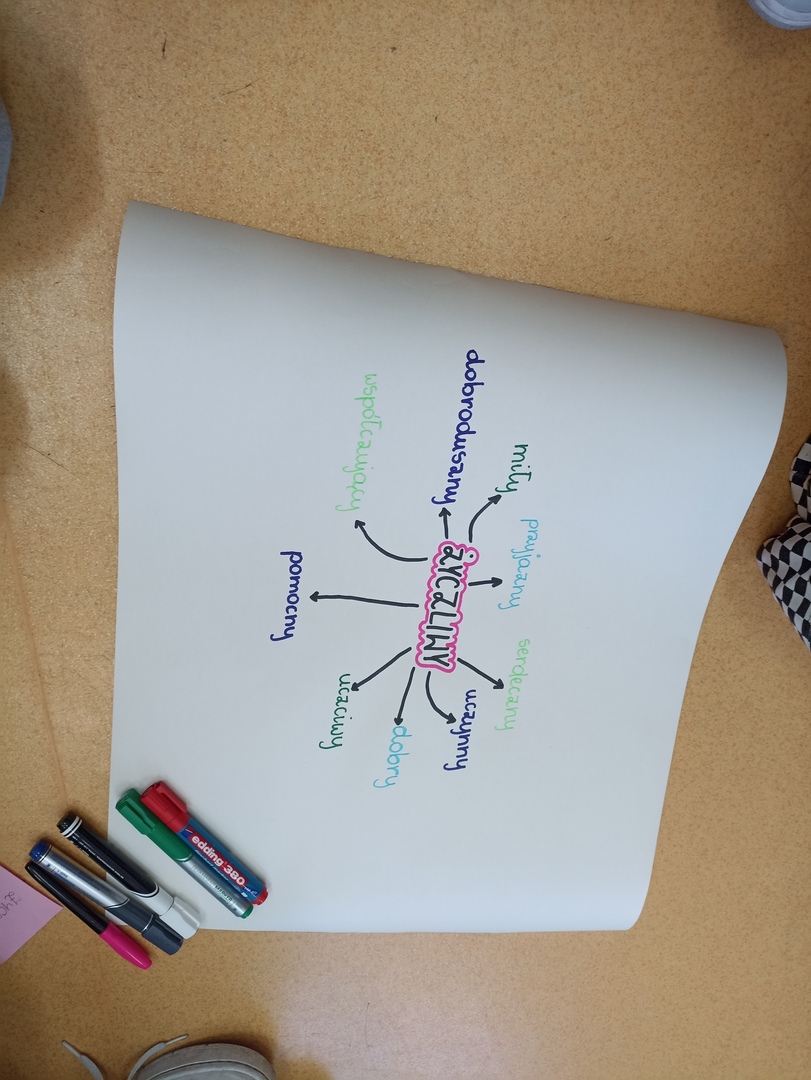 miły
przyjazny
serdeczny
dobroduszny
uczynny
ŻYCZLIWY
współczujący
dobry
uczciwy
pomocny
edding 380